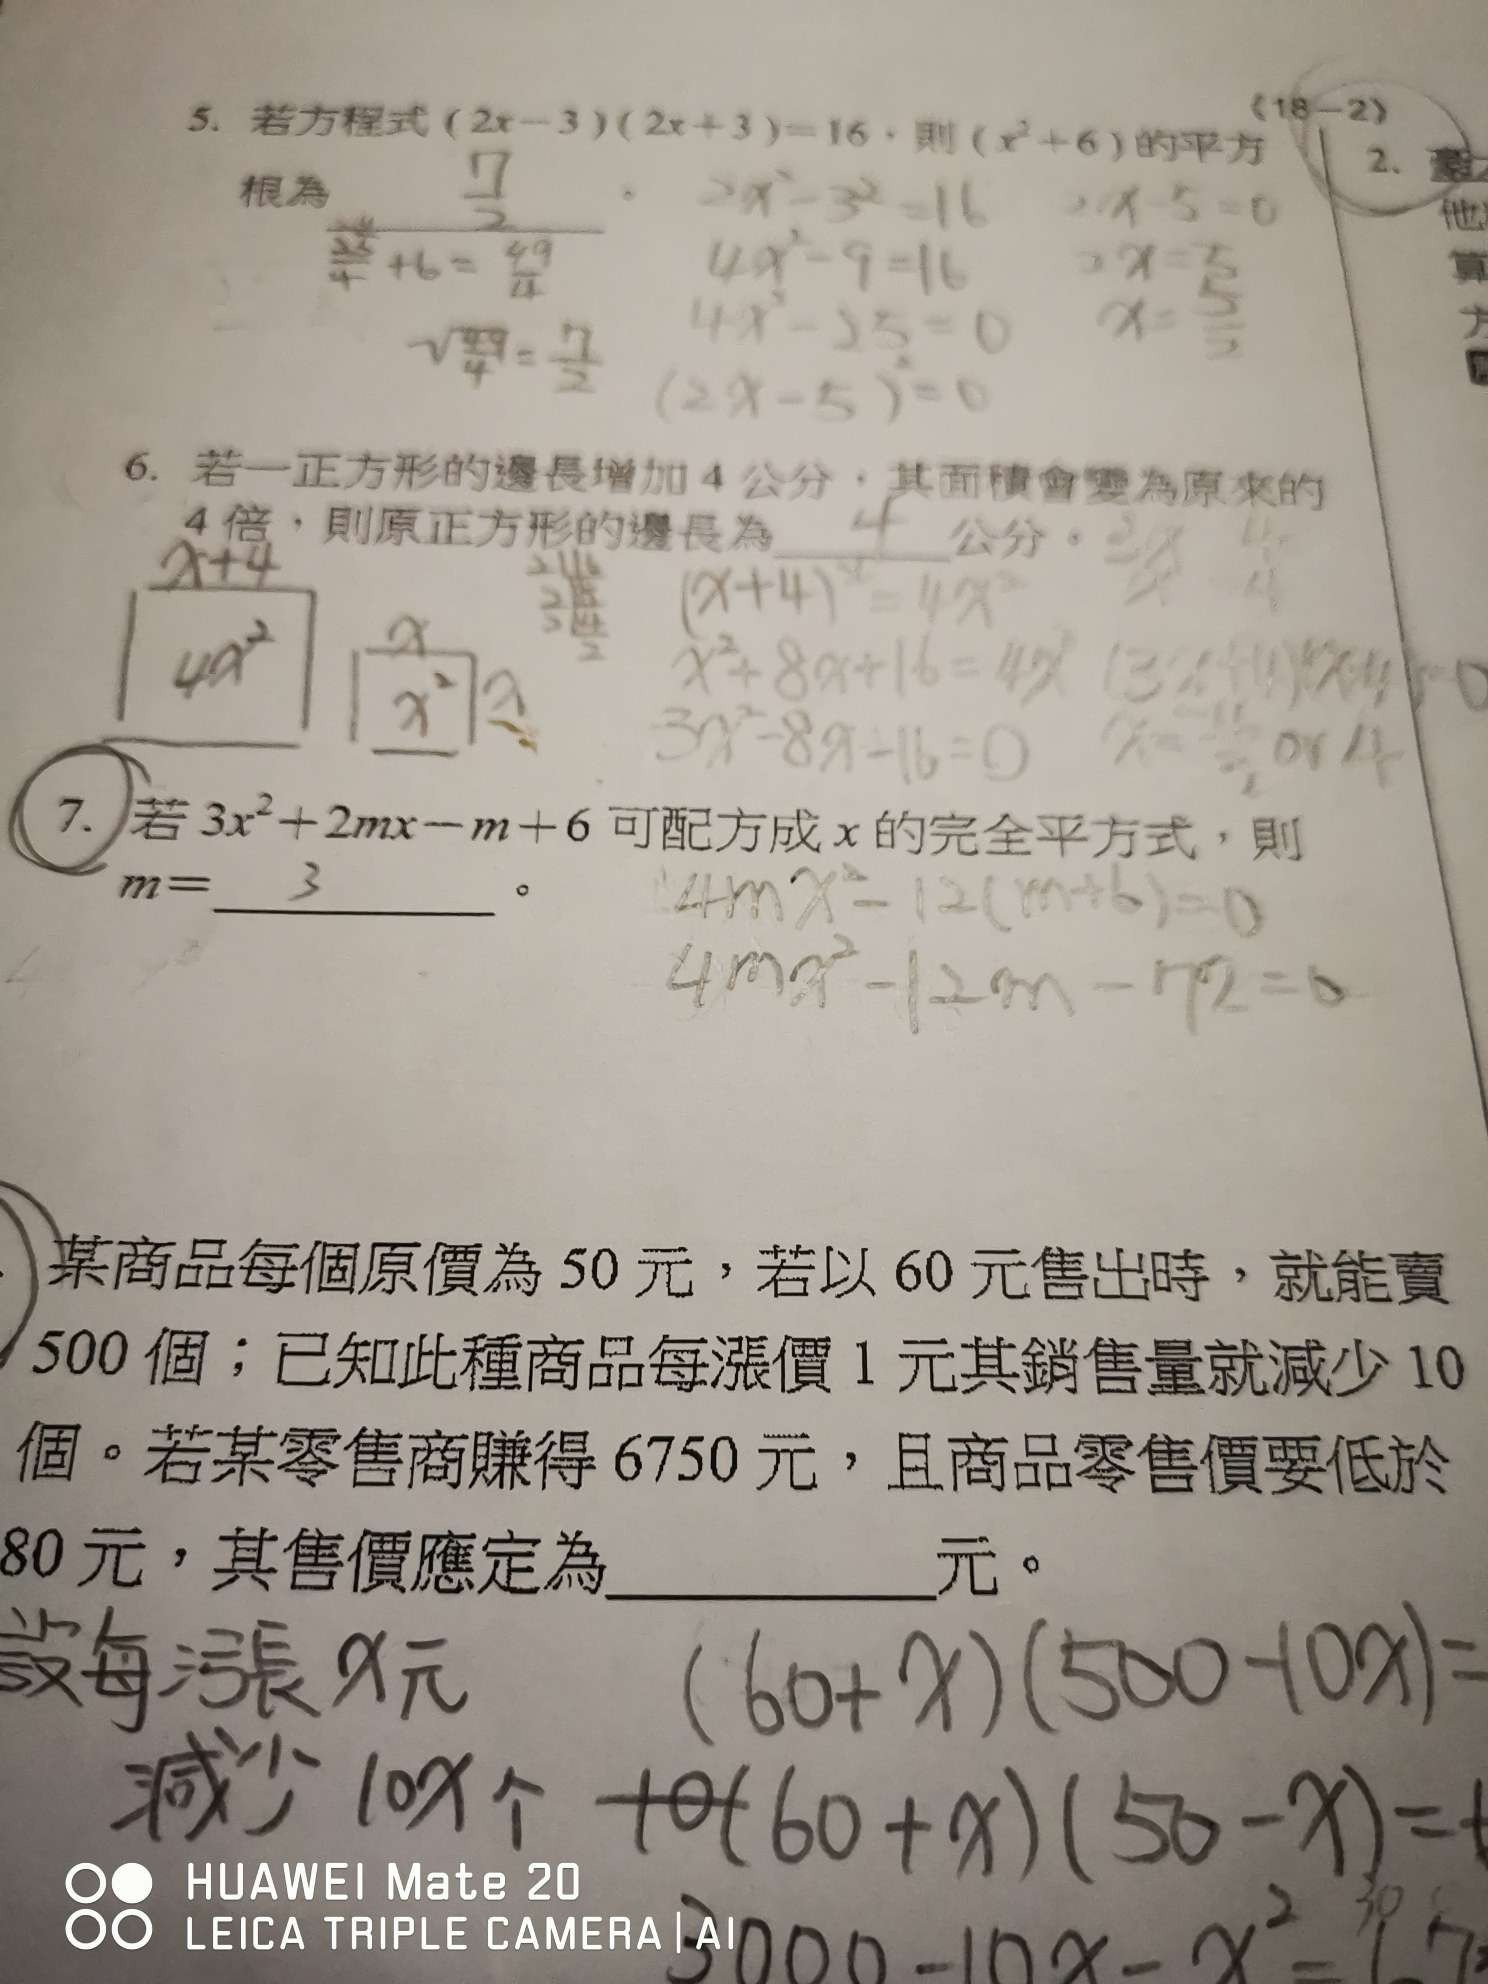 5. 若方程式(2x−3)(2x+3)=16，則(x²+6)的平方
根為 7/2 。
25/4 +6= 49/4
√49/4 = 7/2
2x²−3²=16
4x²−9=16
4x²−25=0
(2x−5)²=0
2x−5=0
2x=5
x=5/2
《18−2》
2.
他
算
方
6. 若一正方形的邊長增加 4 公分，其面積會變為原來的
4 倍，則原正方形的邊長為 4 公分。
x+4
4x²
x
x²
x
(x+4)²=4x²
x²+8x+16=4x²
3x²−8x−16=0
7. 若 3x²+2mx−m+6 可配方成 x 的完全平方式，則
m= 3 。
4mx²−12(m+6)=0
4mx²−12m−72=0
某商品每個原價為 50 元，若以 60 元售出時，就能賣
500 個；已知此種商品每漲價 1 元其銷售量就減少 10
個。若某零售商賺得 6750 元，且商品零售價要低於
80 元，其售價應定為 元。
設每漲 x元 (60+x)(500−10x)=
減少 10x个 (60+x)(50−x)=
3000−10x−x²=
HUAWEI Mate 20
LEICA TRIPLE CAMERA | AI